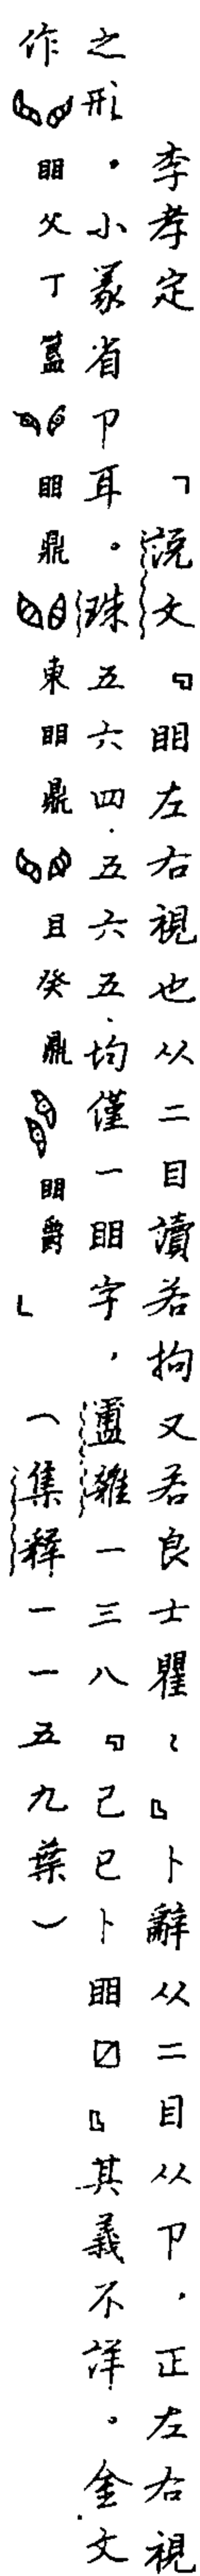 李孝定 「説文『䀠左右視也从二目讀若拘又若良士瞿〻』卜辭从二目从卩,正左右視
之形。小篆省卩耳。珠五六四.五六五.均僅一䀠字,甲雜一三八『己巳卜䀠〼』其義不詳。金文
作䀠父丁簋䀠鼎東䀠鼎且癸鼎䀠爵」(集釋一一五九葉)